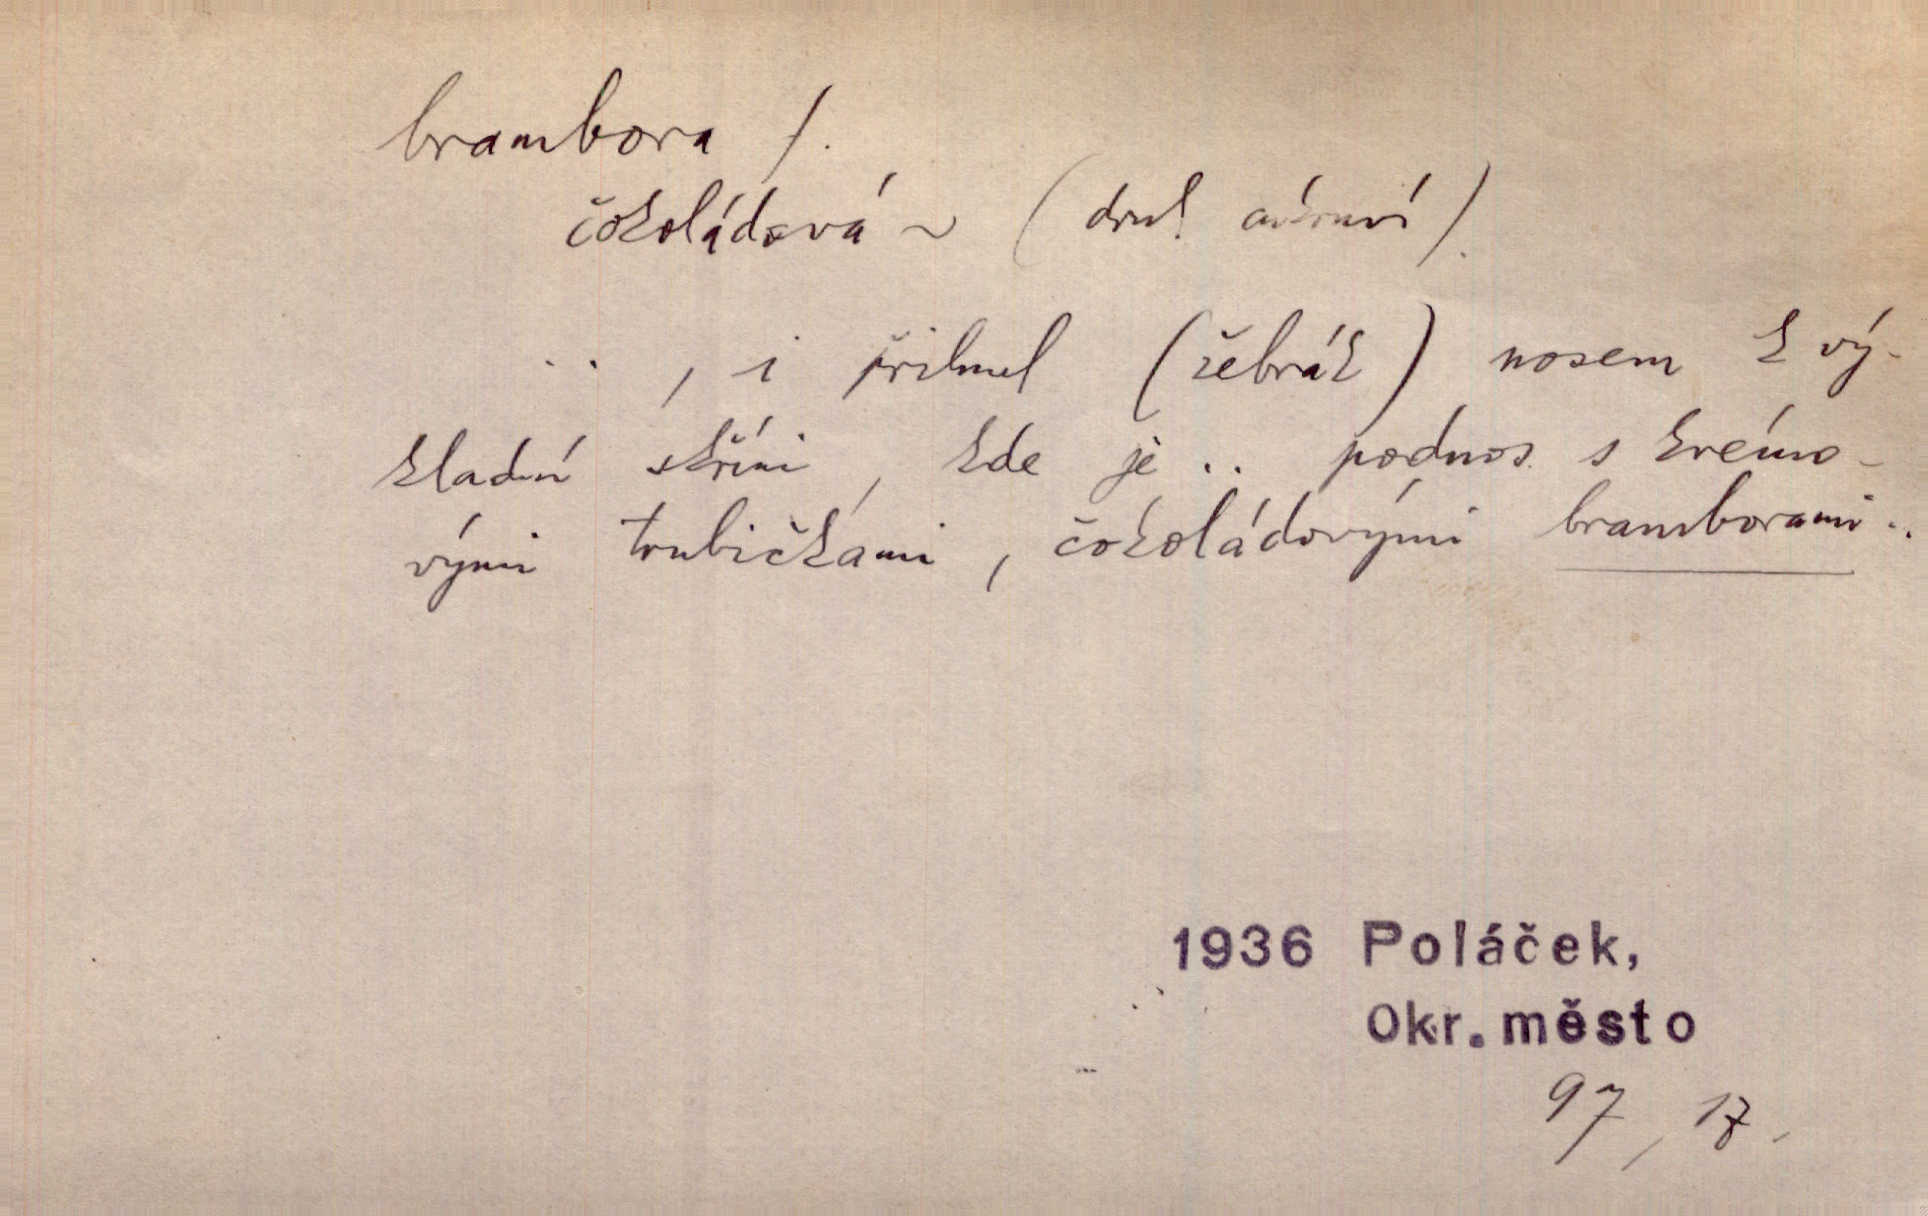 brambora f.
čokoládová ~ (druh cukroví).
.. , i přilnul (žebrák) nosem k vý-
kladní skříni, kde je .. podnos s krémo-
vými trubičkami, čokoládovými bramborami ..
1936 Poláček,
Okr. město
97, 17.